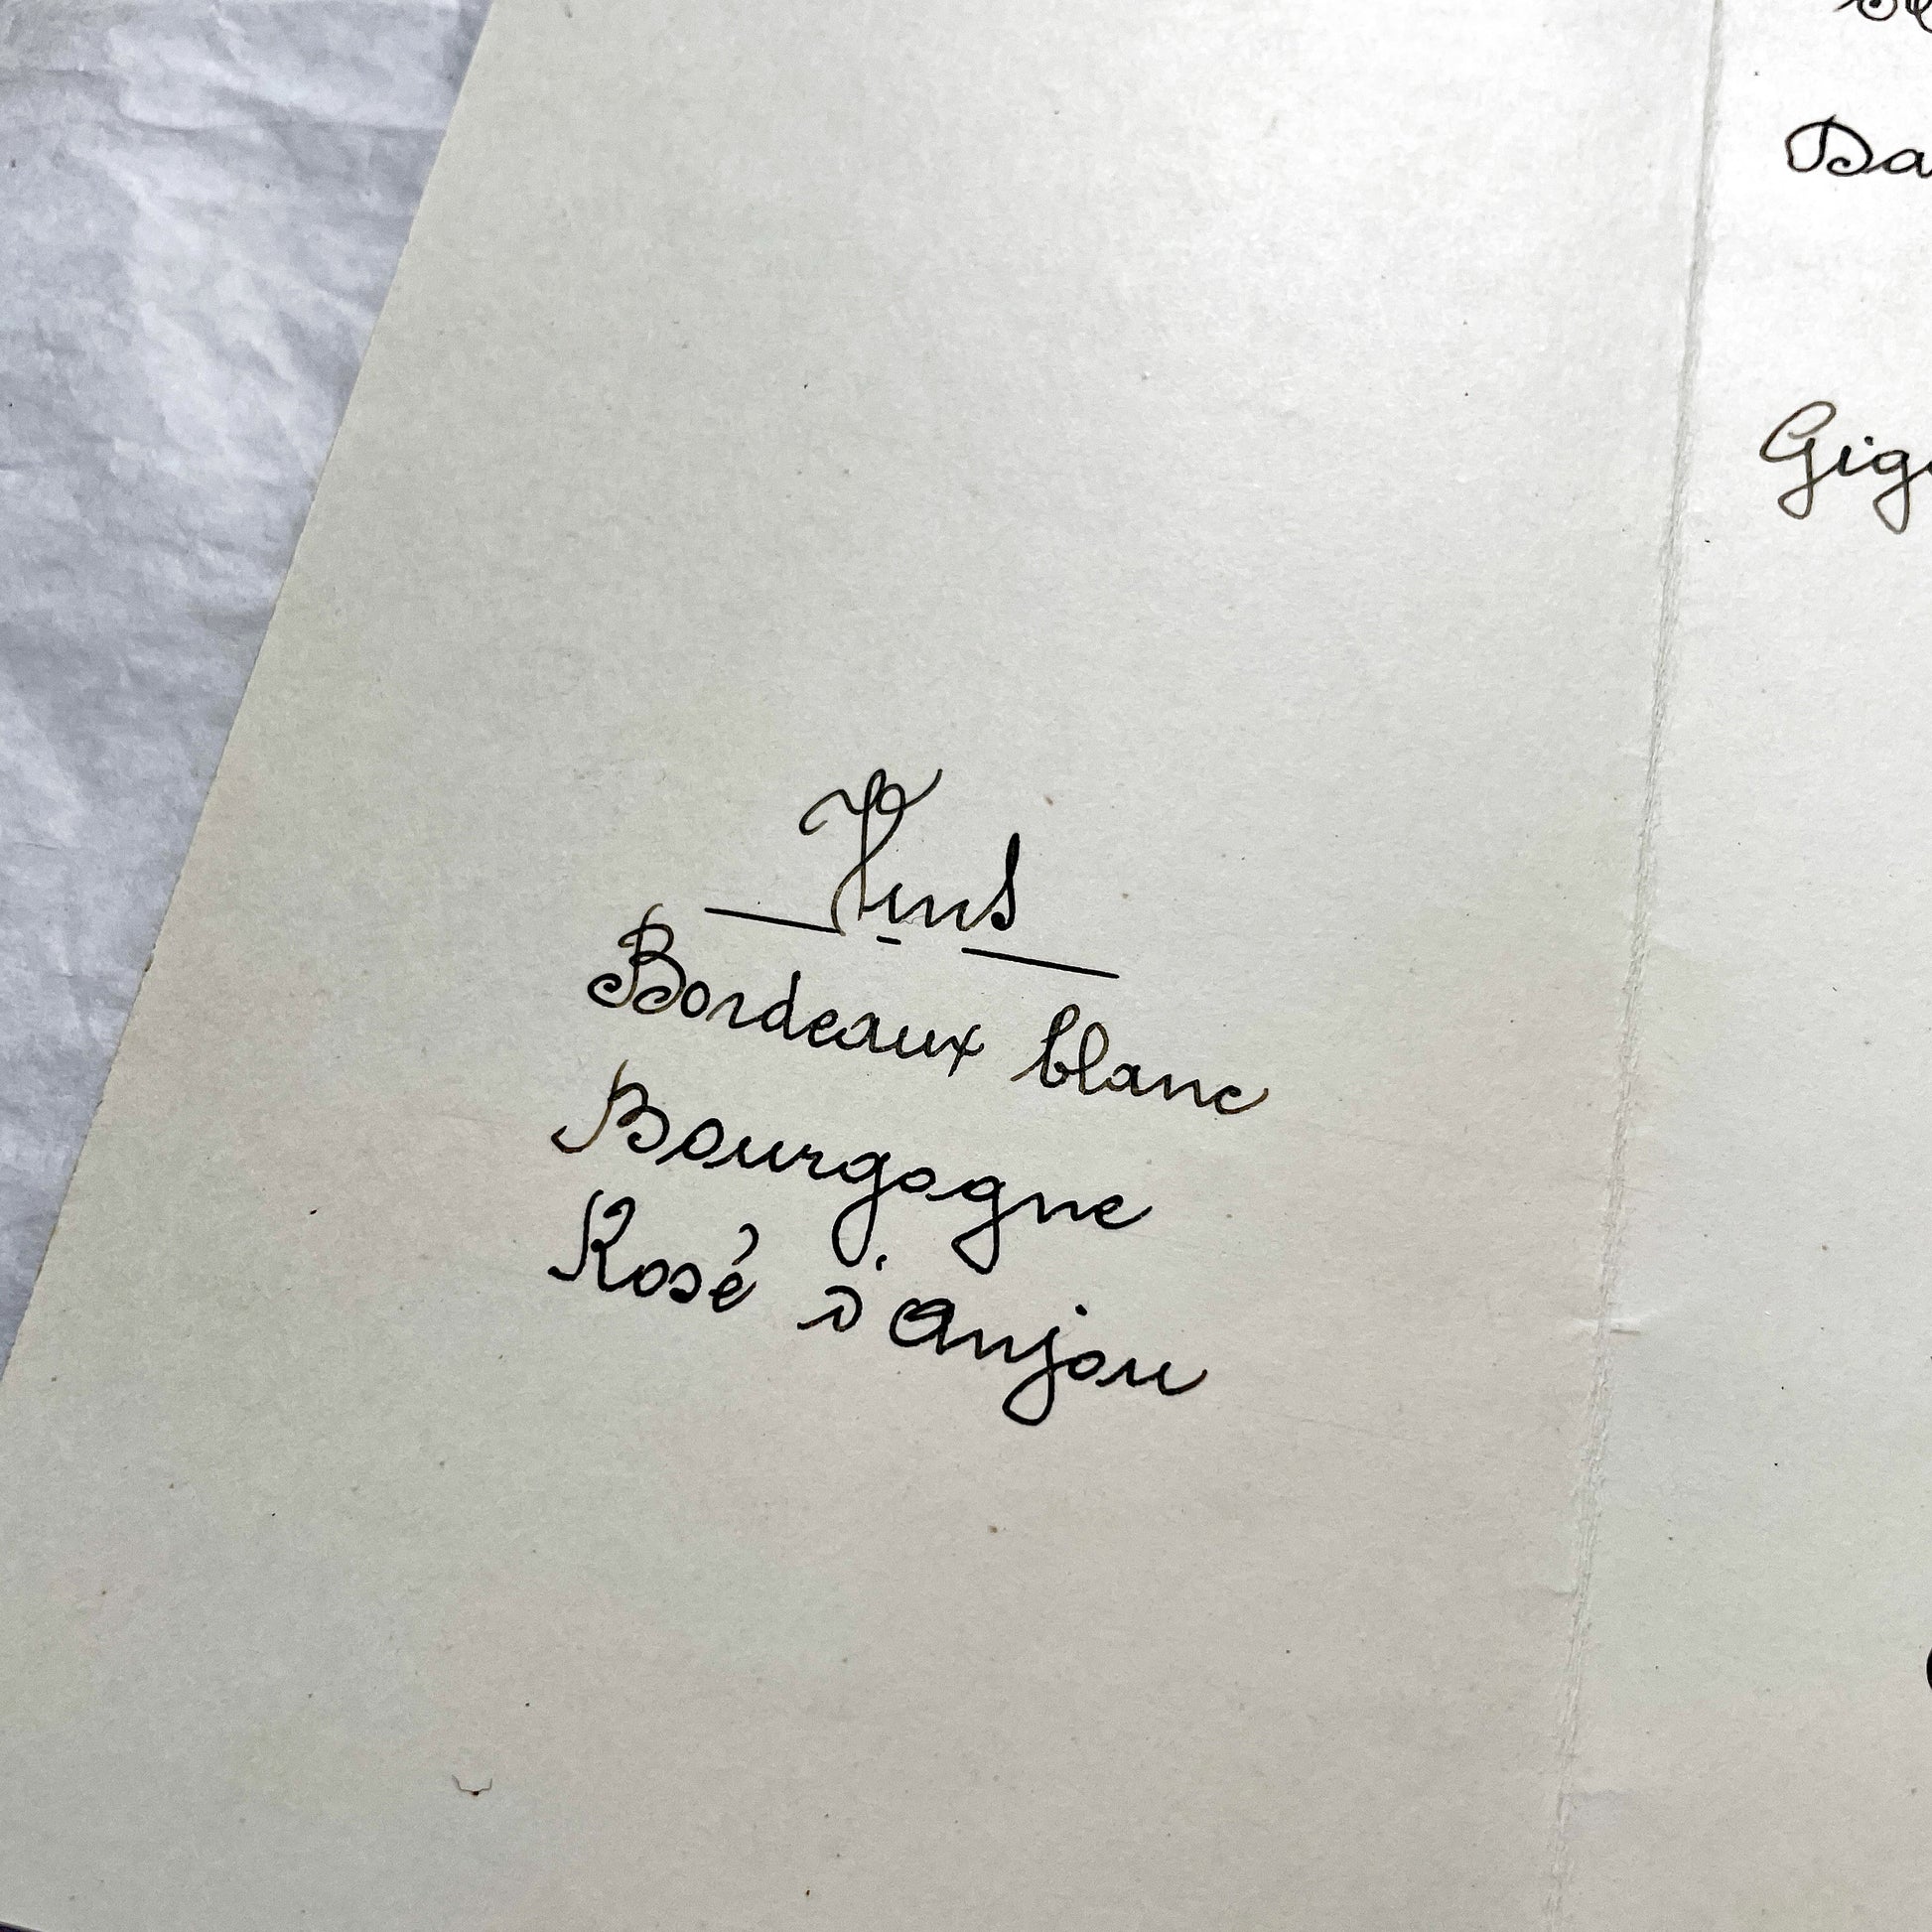 Vins
Bordeaux blanc
Bourgogne
Rosé d'Anjou
Da
Gig